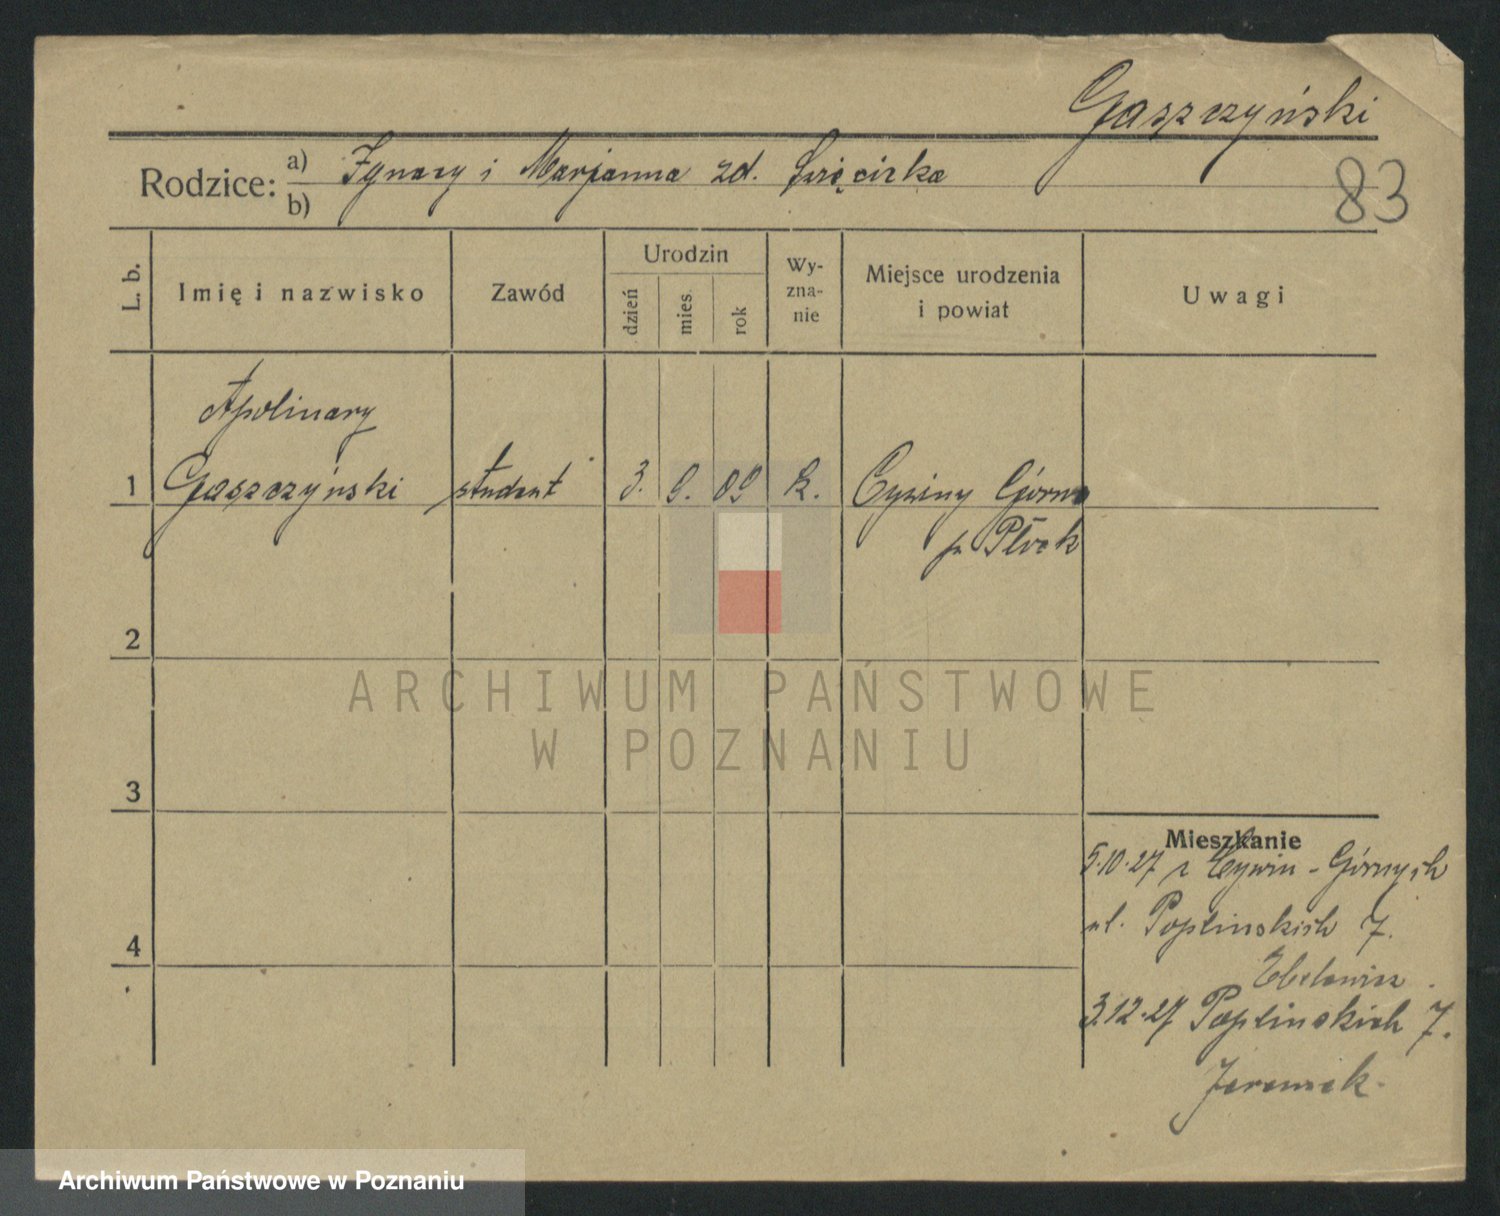 Gaszczyński
83
Rodzice: a) Ignacy i Marjanna zd.
b)
L. b.
Imię i nazwisko
Zawód
Urodzin
dzień
mies.
rok
Wy-
zna-
nie
Miejsce urodzenia
i powiat
Uwagi
Apolinary
1 Gaszczyński student 3. 9. 09 k. Cywiny Górne
p. Płock
2
3
4
Mieszkanie
5.10.27 z Cywin - Górnych
ul. Poplinskich 7.
3.12.27 Poplinskich 7.
ARCHIWUM PAŃSTWOWE
W POZNANIU
Archiwum Państwowe w Poznaniu